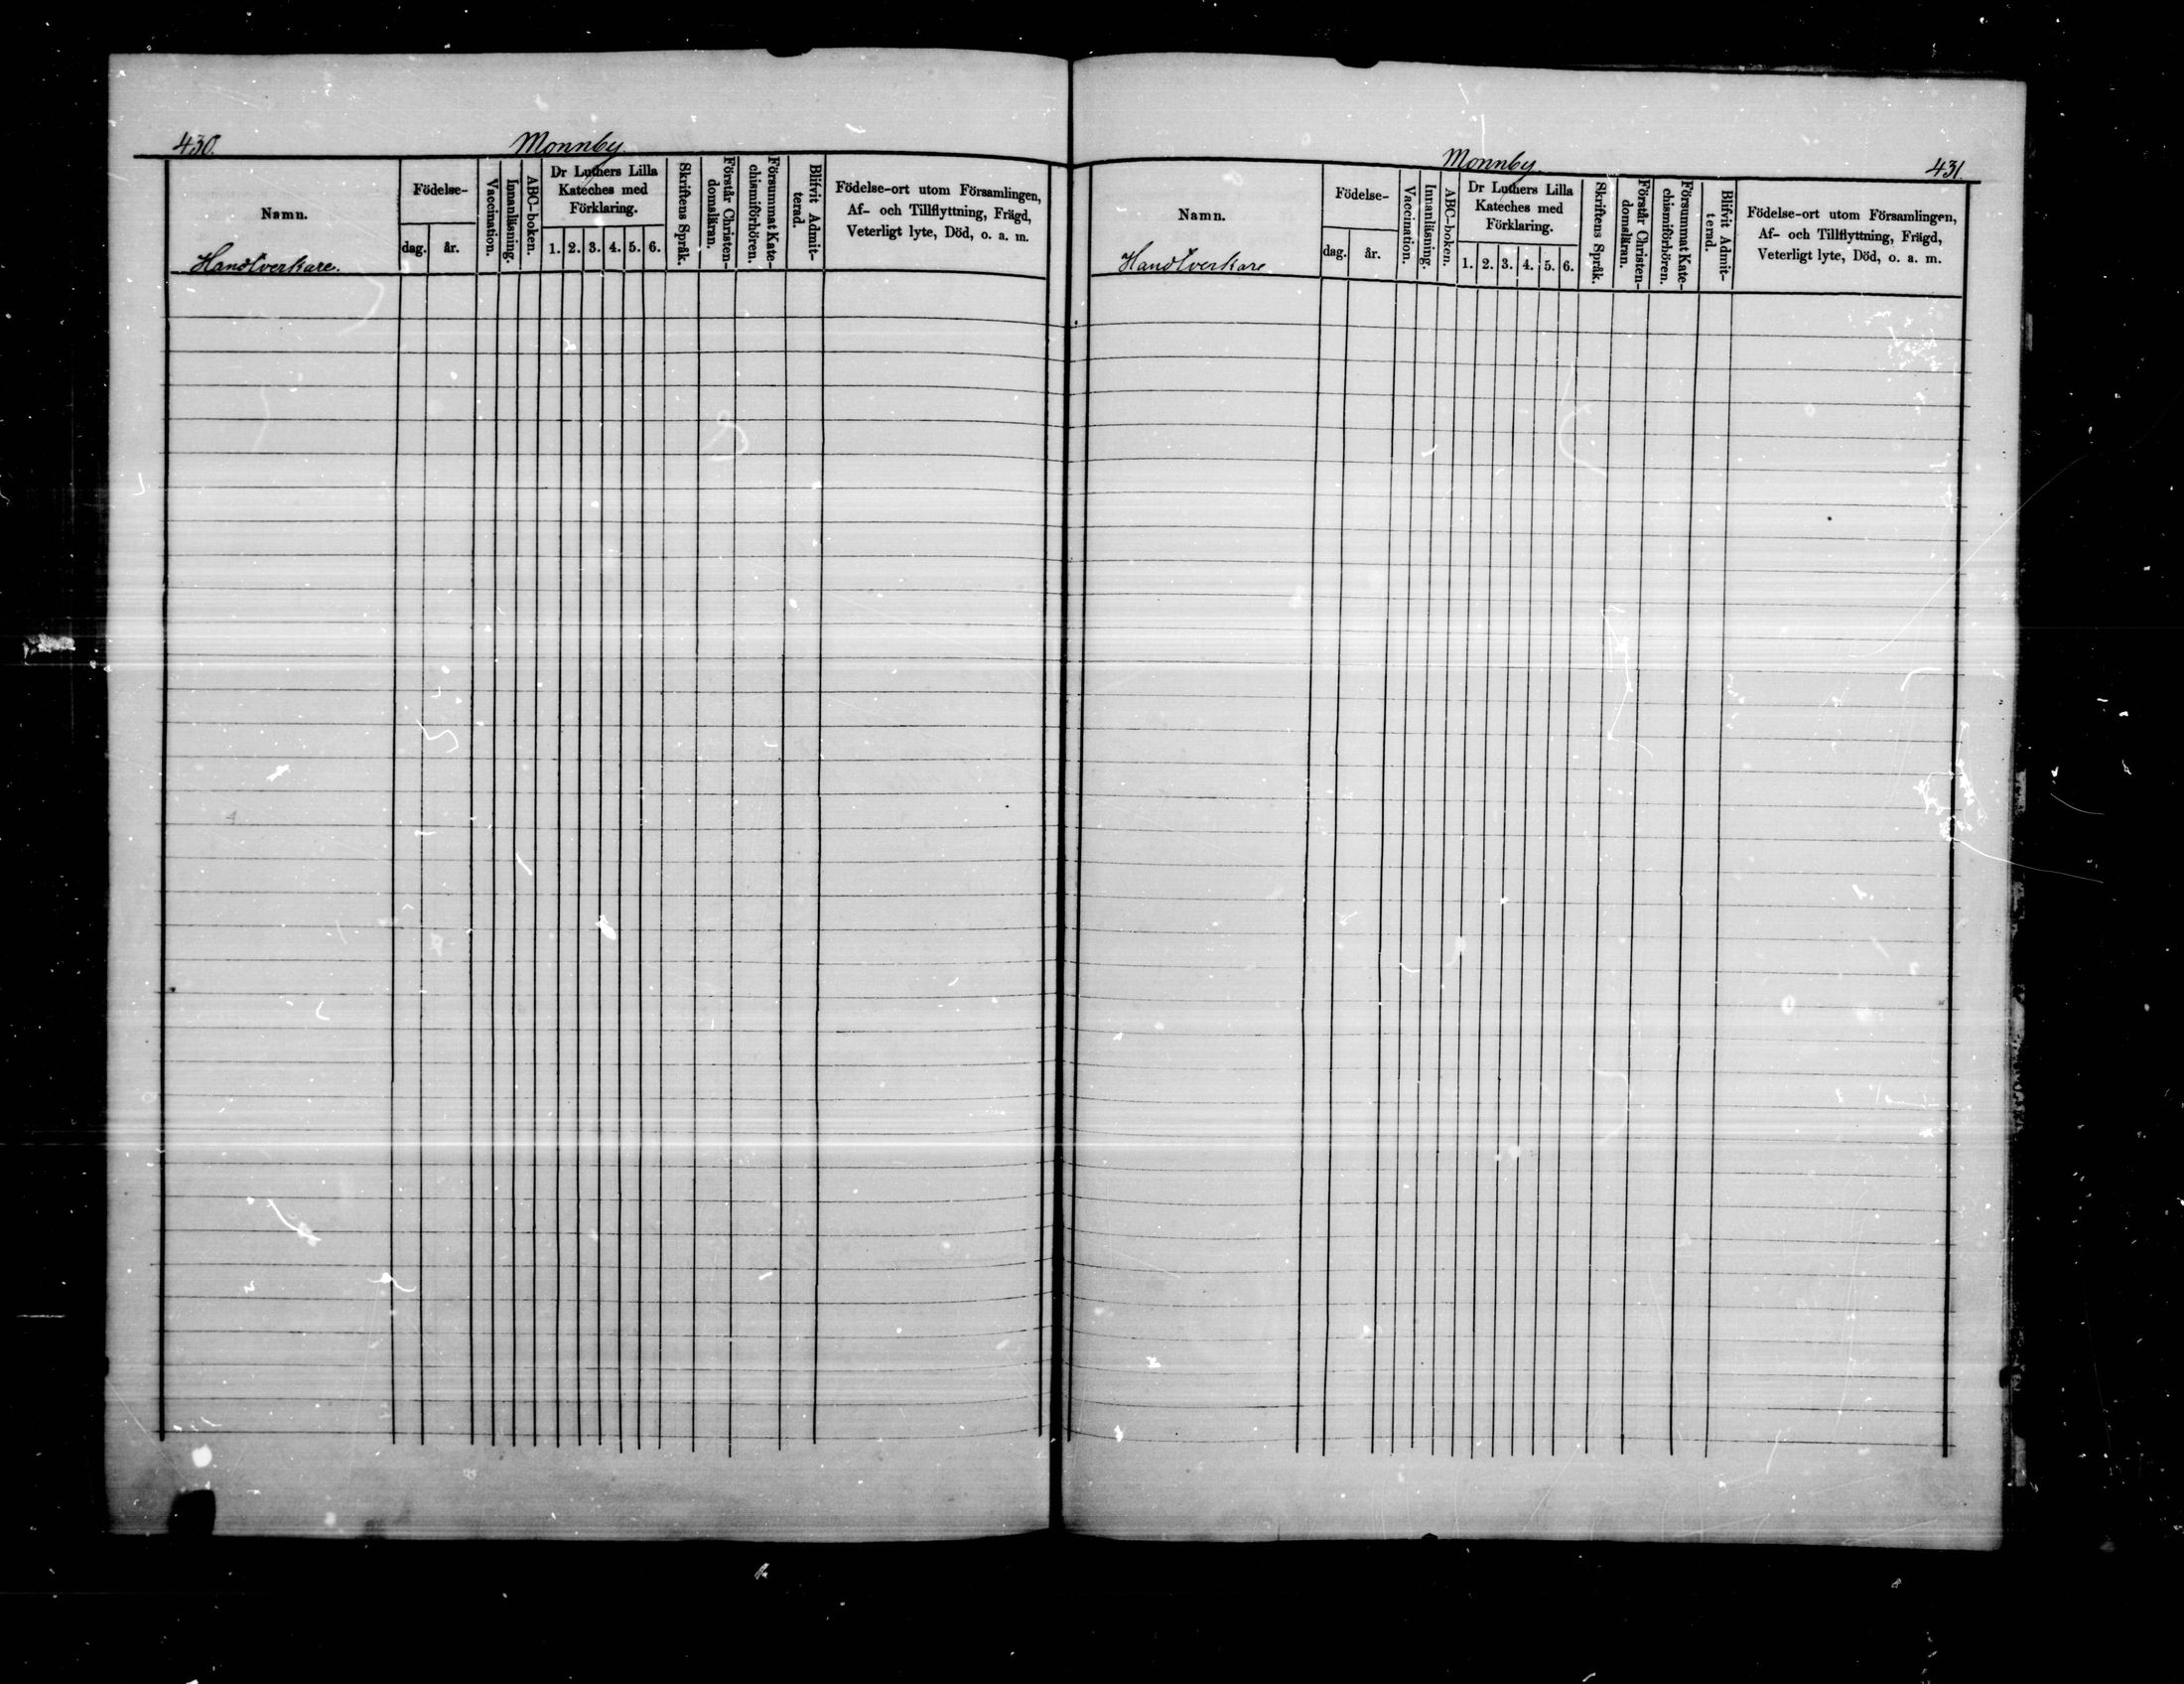 430.
Monnby.
Namn.
Handtverkare.
Födelse-
dag.
år.
Vaccination.
Innanläsning.
ABC-boken.
Dr Luthers Lilla
Kateches med
Förklaring.
1. 2. 3. 4. 5. 6.
Skriftens Språk.
Förstår Christen-
domsläran.
Försummat Kate-
chismiförhören.
Blifvit Admit-
terad.
Födelse-ort utom Församlingen,
Af- och Tillflyttning, Frägd,
Veterligt lyte, Död, o. a. m.
Monnby.
431.
Namn.
Handtverkare
Födelse-
dag.
år.
Vaccination.
Innanläsning.
ABC-boken.
Dr Luthers Lilla
Kateches med
Förklaring.
1. 2. 3. 4. 5. 6.
Skriftens Språk.
Förstår Christen-
domsläran.
Försummat Kate-
chismiförhören.
Blifvit Admit-
terad.
Födelse-ort utom Församlingen,
Af- och Tillflyttning, Frägd,
Veterligt lyte, Död, o. a. m.